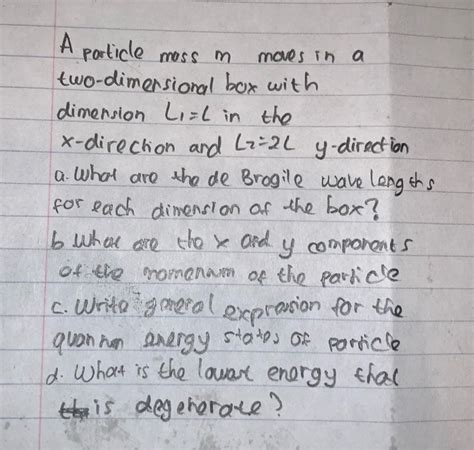 A particle mass m moves in a
two-dimensional box with
dimension L1=L in the
x-direction and L2=2L y-direction
a. What are the de Brogile wave lengths
for each dimension of the box?
b What are the x and y components
of the momenum of the particle
c. Write general expression for the
quantum energy states of particle
d. What is the lowest energy that
is degenerate?